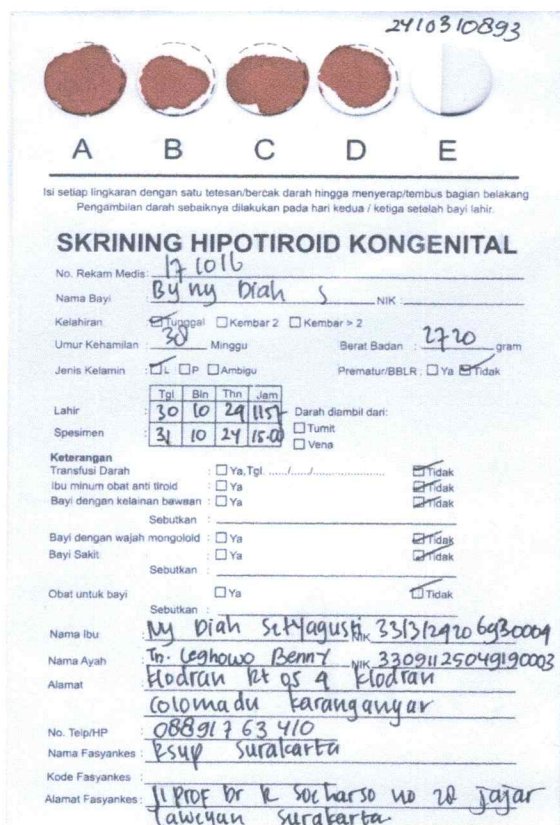 2410310893
A B C D E
Isi setiap lingkaran dengan satu tetesan/bercak darah hingga menyerap/tembus bagian belakang
Pengambilan darah sebaiknya dilakukan pada hari kedua / ketiga setelah bayi lahir.
SKRINING HIPOTIROID KONGENITAL
No. Rekam Medis: 171016
Nama Bayi : By ny Diah S NIK :
Kelahiran : Tunggal Kembar 2 Kembar > 2
Umur Kehamilan : 38 Minggu Berat Badan : 2720 gram
Jenis Kelamin : L P Ambigu Prematur/BBLR : Ya Tidak
Tgl Bln Thn Jam
Lahir : 30 10 24 Darah diambil dari:
Spesimen : 31 10 24 15.00 Tumit
Vena
Keterangan
Transfusi Darah : Ya,Tgl. ....../....../.................. Tidak
Ibu minum obat anti tiroid : Ya Tidak
Bayi dengan kelainan bawaan : Ya Tidak
Sebutkan :
Bayi dengan wajah mongoloid : Ya Tidak
Bayi Sakit : Ya Tidak
Sebutkan :
Obat untuk bayi Ya Tidak
Sebutkan :
Nama Ibu : Ny Diah NIK
Nama Ayah : Tn. Leghowo Benny NIK 33091125049190003
Alamat : Klodran Rt 05 Klodran
Colomadu Karanganyar
No. Telp/HP : 08891763410
Nama Fasyankes : Rsup Surakarta
Kode Fasyankes :
Alamat Fasyankes : Jl Prof Dr R Soeharso no 28 Jajar
Laweyan Surakarta